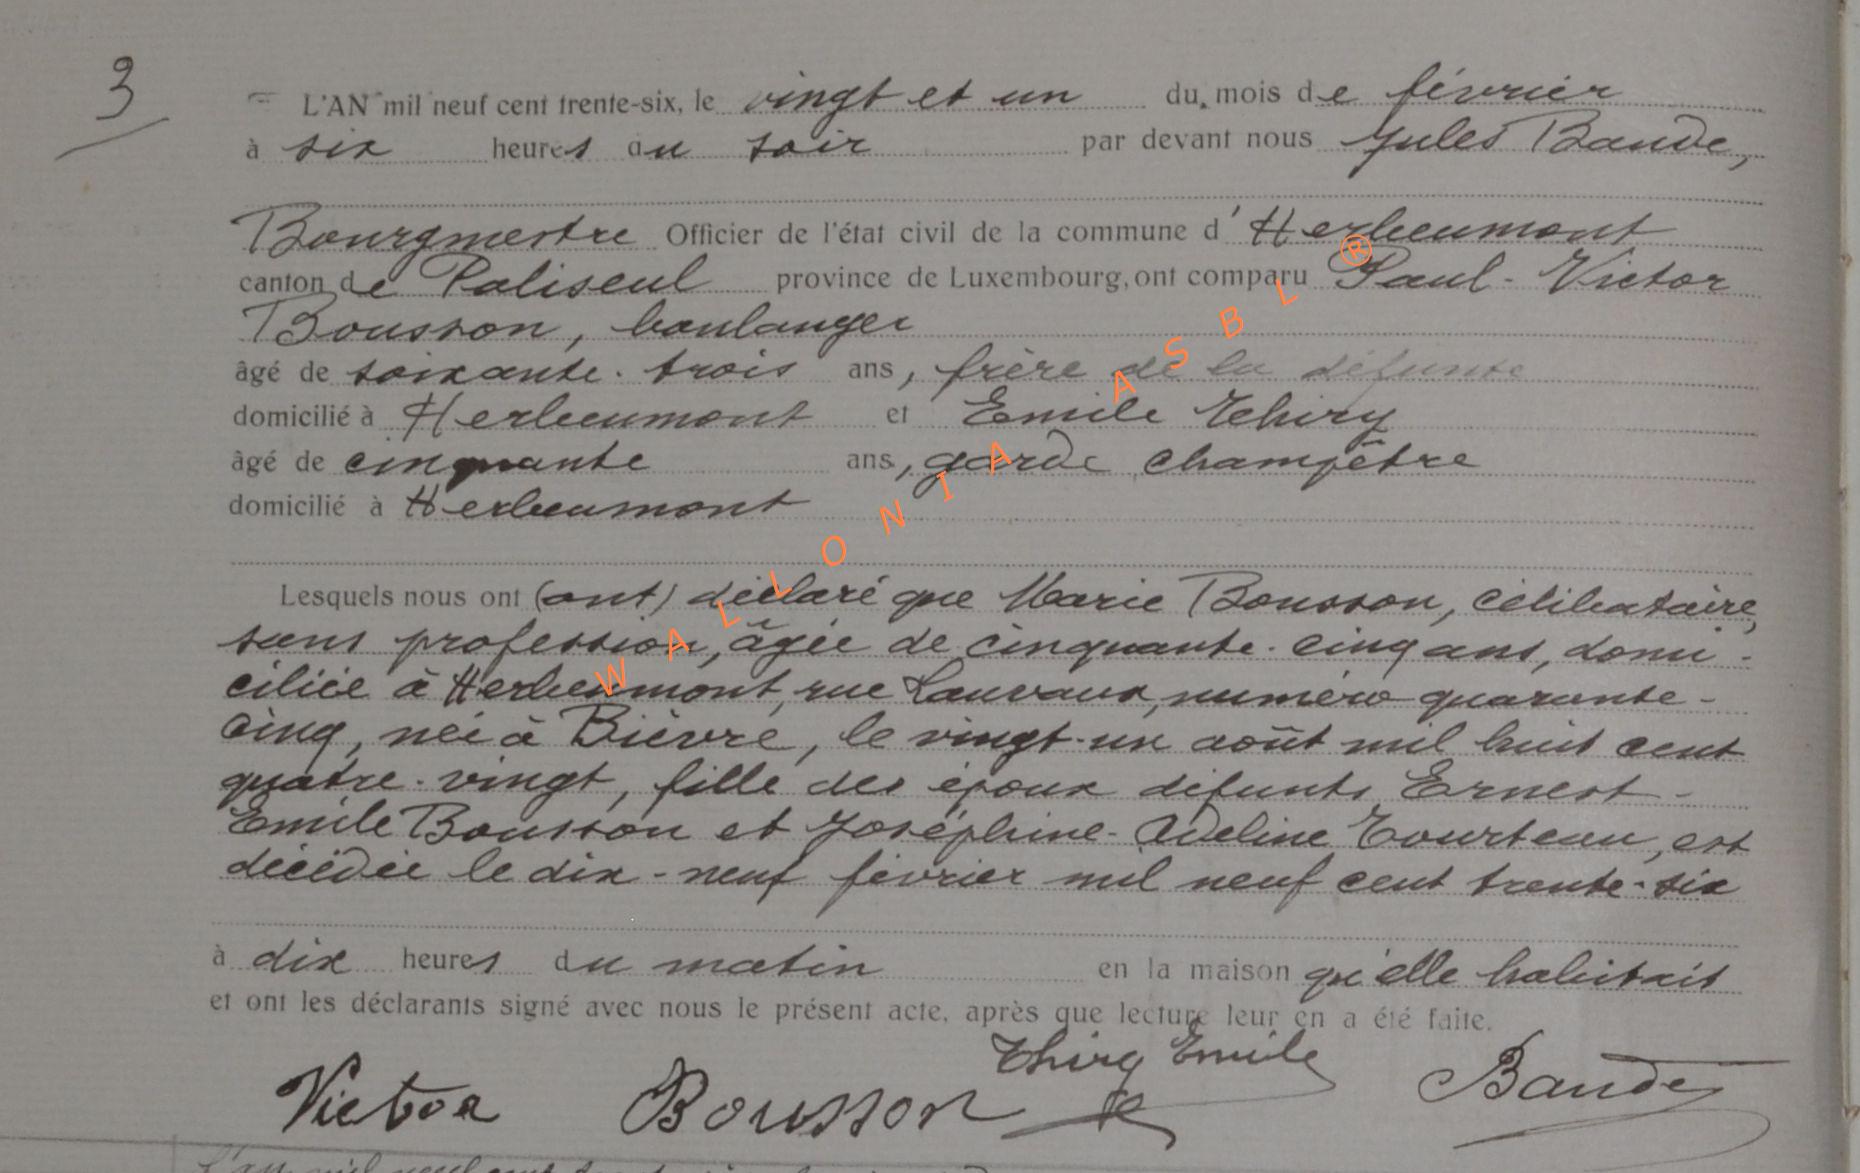 3
L'AN mil neuf cent trente-six, le vingt et un du mois de février
à six heures du soir par devant nous Jules Baude,
Bourgmestre Officier de l'état civil de la commune d'Herbeumont
canton de Paliseul province de Luxembourg, ont comparu Paul-Victor
Bousson, boulanger
âgé de soixante-trois ans, frère de la défunte
domicilié à Herbeumont et Emile Thiry
âgé de cinquante ans, garde champêtre
domicilié à Herbeumont
Lesquels nous ont (ont) déclaré que Marie Bousson, célibataire,
sans profession, âgée de cinquante-cinq ans, domi-
ciliée à Herbeumont, rue Lauvaux, numéro quarante-
cinq, née à Bièvre, le vingt-un août mil huit cent
quatre-vingt, fille des époux défunts Ernest-
Emile Bousson et Joséphine-Adeline Tourteau, est
décédée le dix-neuf février mil neuf cent trente-six
à dix heures du matin en la maison qu'elle habitait
et ont les déclarants signé avec nous le présent acte, après que lecture leur en a été faite.
Thiry Emile
Victor Bousson Baude
WALLONIA ASBL ®